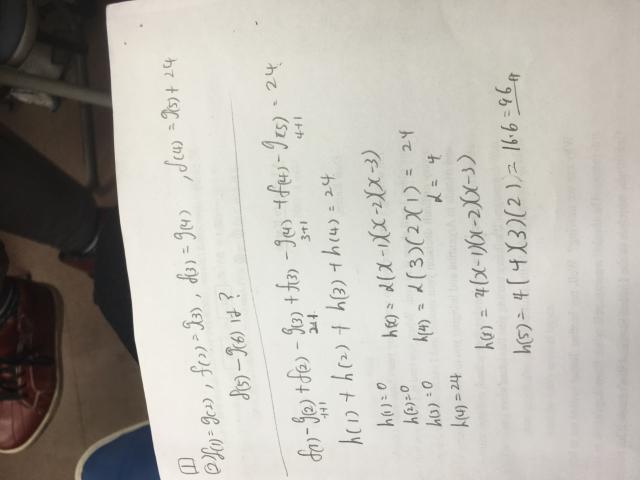 1
② f(1)=g(2), f(2)=g(3), f(3)=g(4), f(4)=g(5)+24
f(5)-g(6) は?
f(1)-g(2)+f(2)-g(3)+f(3)-g(4)+f(4)-g(5)=24
1+1 2+1 3+1 4+1
h(1)+h(2)+h(3)+h(4)=24
h(1)=0 h(x)=α(x-1)(x-2)(x-3)
h(2)=0 h(4)=α(3)(2)(1)=24
h(3)=0 α=4
h(4)=24
h(x)=4(x-1)(x-2)(x-3)
h(5)=4(4)(3)(2)=16·6=96